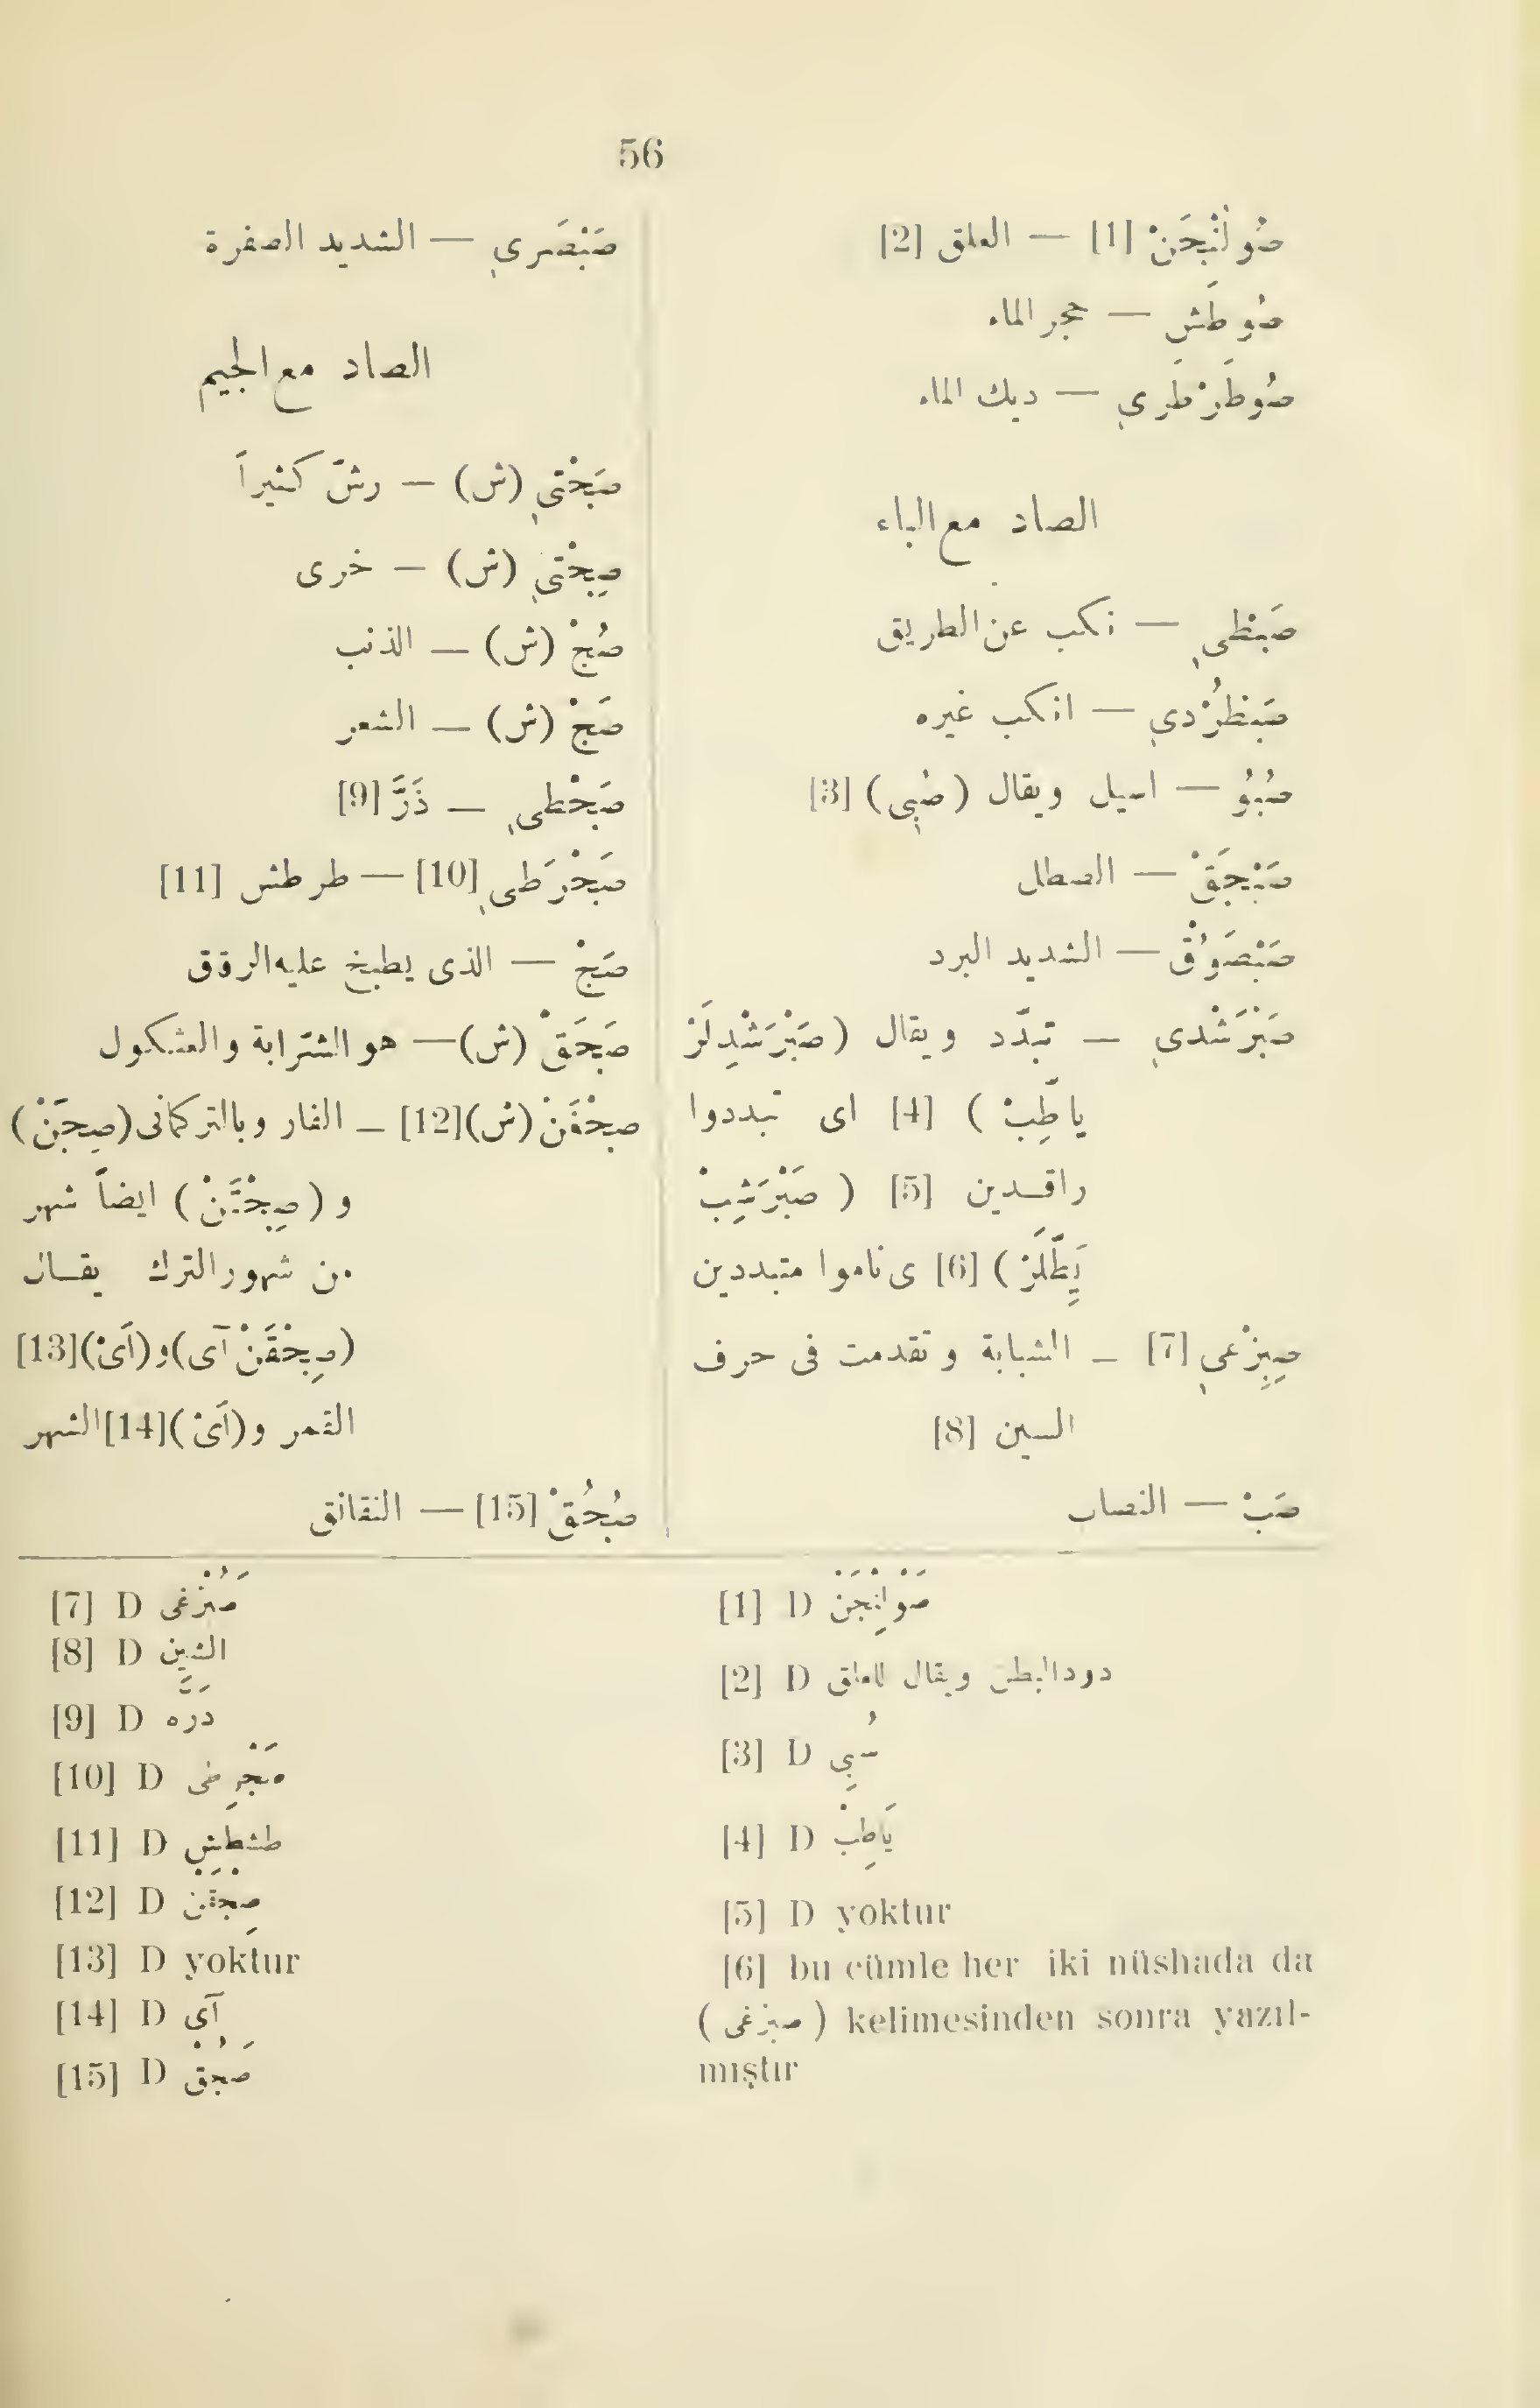 56
صُولُنْجَنْ [1] — العلق [2]
صُوطَشِ — حجر الماء
صُوطَرْطَرِي — ديك الماء
الصاد مع الباء
صَبَطِي — نكب عن الطريق
صَبَطُرْدِي — انكب غيره
صُبُو — اسيل ويقال (صُبِى) [3]
صَبْجَقْ — الصطل
صَبْصَوُقْ — الشديد البرد
صَبْرَشْدِي — تبدّد ويقال (صَبْرَشْدِلَرْ
ياطِّبْ) [4] اى تبددوا
راقدين [5] (صَبْرَشِبْ
يَطِّلَرْ) [6] ى ناموا متبددين
صِبِزْغِي [7] — الشبابة وتقدمت فى حرف
السين [8]
صَبْ — النصاب
صَبْصَرِي — الشديد الصفرة
الصاد مع الجيم
صَجْتِي (ش) — رش كثيراً
صِجْتِي (ش) — خرى
صُجْ (ش) — الذنب
صَجْ (ش) — الشعر
صَجْطِي — ذَرَّ [9]
صَجْرَطِي [10] — طرطش [11]
صَجْ — الذى يطبخ عليه الرقاق
صَجَقْ (ش) — هو الشرّابة والعثكول
صِجْقَنْ (ش) [12] — الفار وبالتركمانى (صِجَنْ)
و (صِجْقَنْ) ايضاً شهر
من شهور الترك يقال
(صِجْقَنْ آى) و(اَىْ) [13]
القمر و(اَىْ) [14] الشهر
صُجُقْ [15] — النقانق
[1] D صَوْلِنْجَنْ
[2] D دود البطن ويقال للعلق
[3] D سُبِي
[4] D يَاطِبْ
[5] D yoktur
[6] bu cümle her iki nüshada da
(صبزغى) kelimesinden sonra yazıl-
mıştır
[7] D صَبُزْغى
[8] D الشين
[9] D دره
[10] D صَجْرِطى
[11] D طشطش
[12] D صِجْقَنْ
[13] D yoktur
[14] D آي
[15] D صَجُقْ